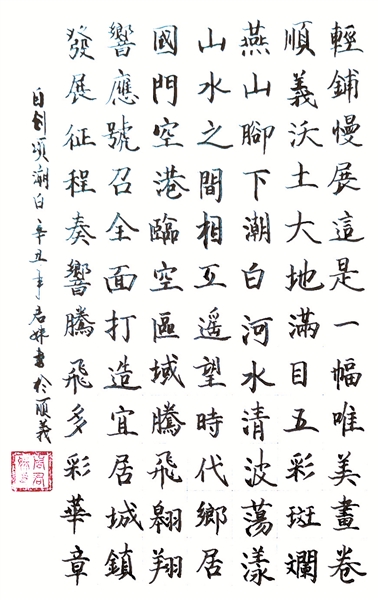 輕鋪慢展這是一幅唯美畫卷
順義沃土大地滿目五彩斑斕
燕山腳下潮白河水清波蕩漾
山水之間相互遙望時代鄉居
國門空港臨空區域騰飛翱翔
響應號召全面打造宜居城鎮
發展征程奏響騰飛多彩華章
自創頌潮白辛丑年君妹書於順義